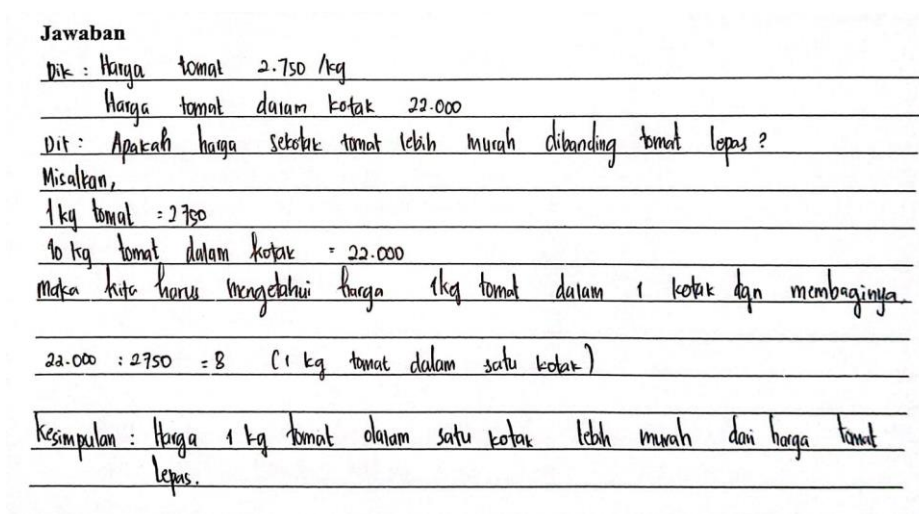 Jawaban
Dik : Harga tomat 2.750 /kg
Harga tomat dalam kotak 22.000
Dit : Apakah harga sekotak tomat lebih murah dibanding tomat lepas ?
Misalkan,
1 kg tomat = 2750
10 kg tomat dalam kotak = 22.000
maka kita harus mengetahui harga 1kg tomat dalam 1 kotak dgn membaginya.
22.000 : 2750 = 8 (1 kg tomat dalam satu kotak)
Kesimpulan : Harga 1 kg tomat dalam satu kotak lebih murah dari harga tomat
lepas.